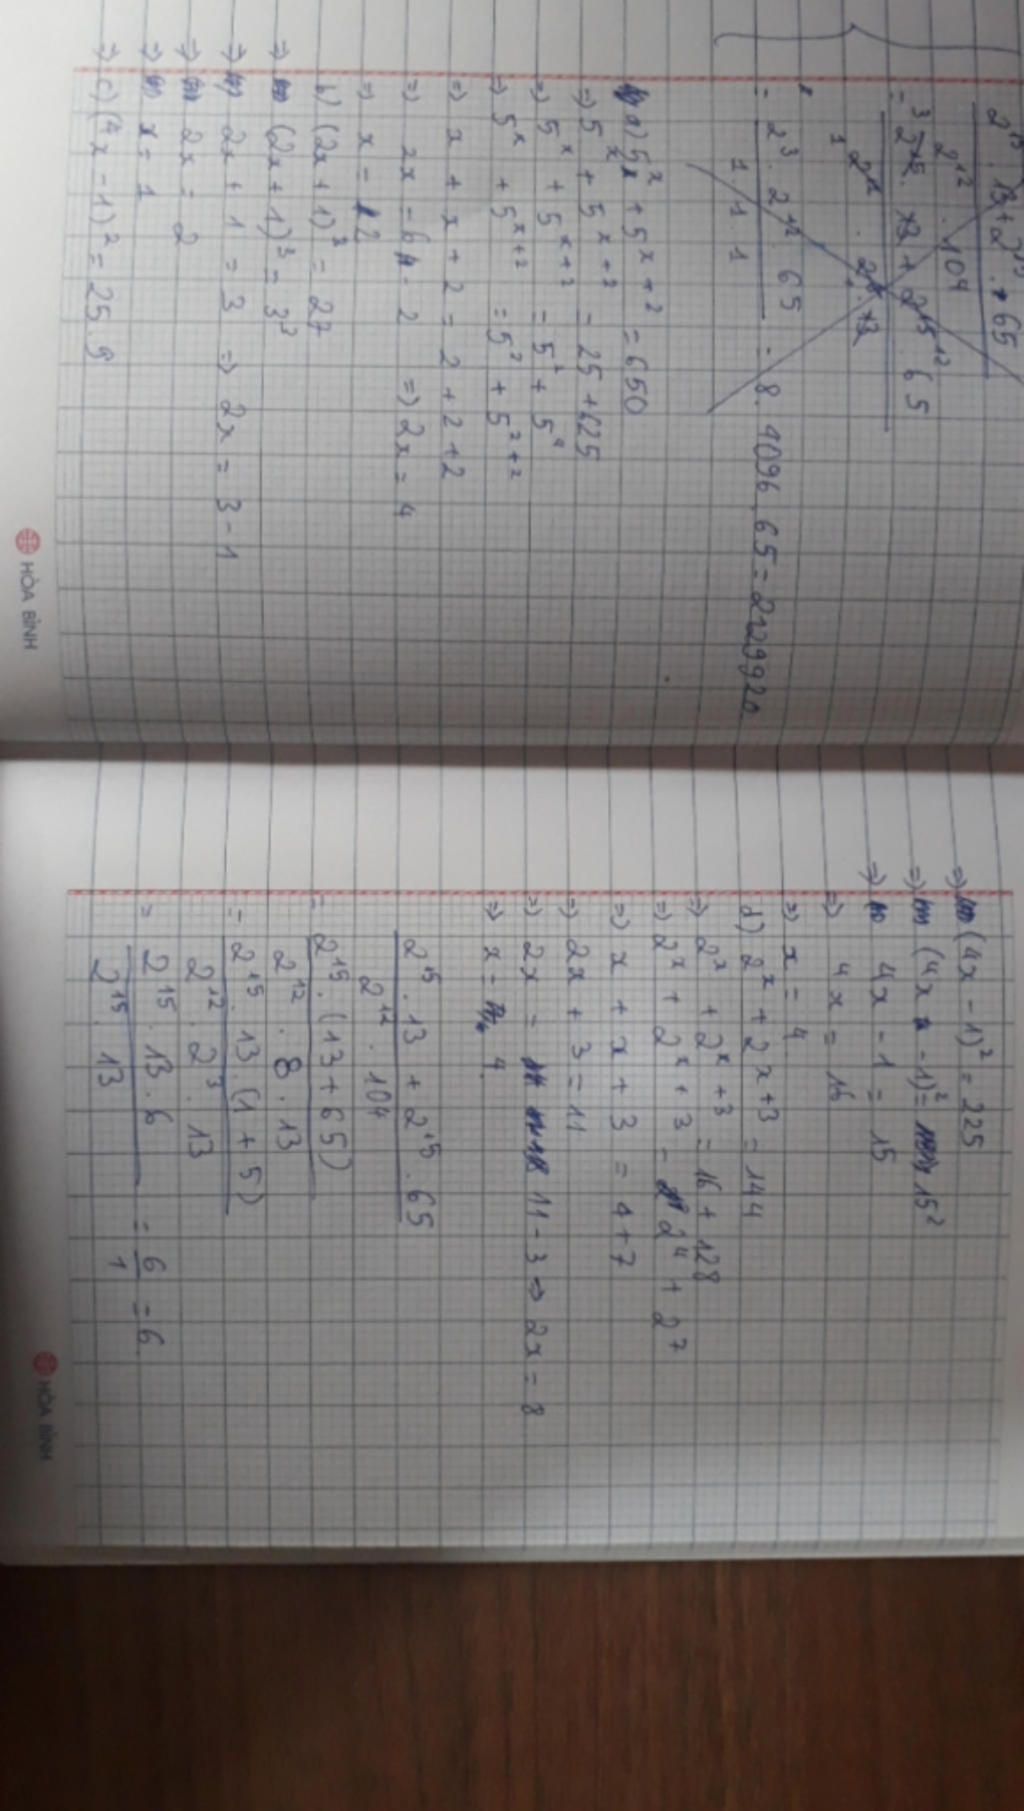 2^15 . 13 + 2^15 . 65
2^12 . 104
= 2^15 . 13 + 2^15 . 65
= 2^3 . 2^12 . 65 = 8 . 4096 . 65 = 2129920
1 . 1 . 1
a) 5^x + 5^x+2 = 650
=> 5^x + 5^x+2 = 25 + 625
=> 5^x + 5^x+2 = 5^2 + 5^4
=> 5^x + 5^x+2 = 5^2 + 5^2+2
=> x + x + 2 = 2 + 2 + 2
=> 2x = 6 - 2 => 2x = 4
=> x = 2
b) (2x + 1)^3 = 27
=> (2x + 1)^3 = 3^3
=> 2x + 1 = 3 => 2x = 3 - 1
=> 2x = 2
=> x = 1
=> c) (4x - 1)^2 = 25 . 9
HÒA BÌNH
=> (4x - 1)^2 = 225
=> (4x - 1)^2 = 15^2
=> 4x - 1 = 15
=> 4x = 16
=> x = 4
d) 2^x + 2^x+3 = 144
=> 2^x + 2^x+3 = 16 + 128
=> 2^x + 2^x+3 = 2^4 + 2^7
=> x + x + 3 = 4 + 7
=> 2x + 3 = 11
=> 2x = 11 - 3 => 2x = 8
=> x = 4
2^15 . 13 + 2^15 . 65
2^12 . 104
= 2^15 . (13 + 65)
2^12 . 8 . 13
= 2^15 . 13 (1 + 5)
2^12 . 2^3 . 13
= 2^15 . 13 . 6 = 6 = 6
2^15 . 13 1
HÒA BÌNH